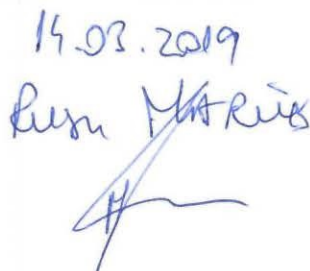 14.03.2019
Rusu MARIUS